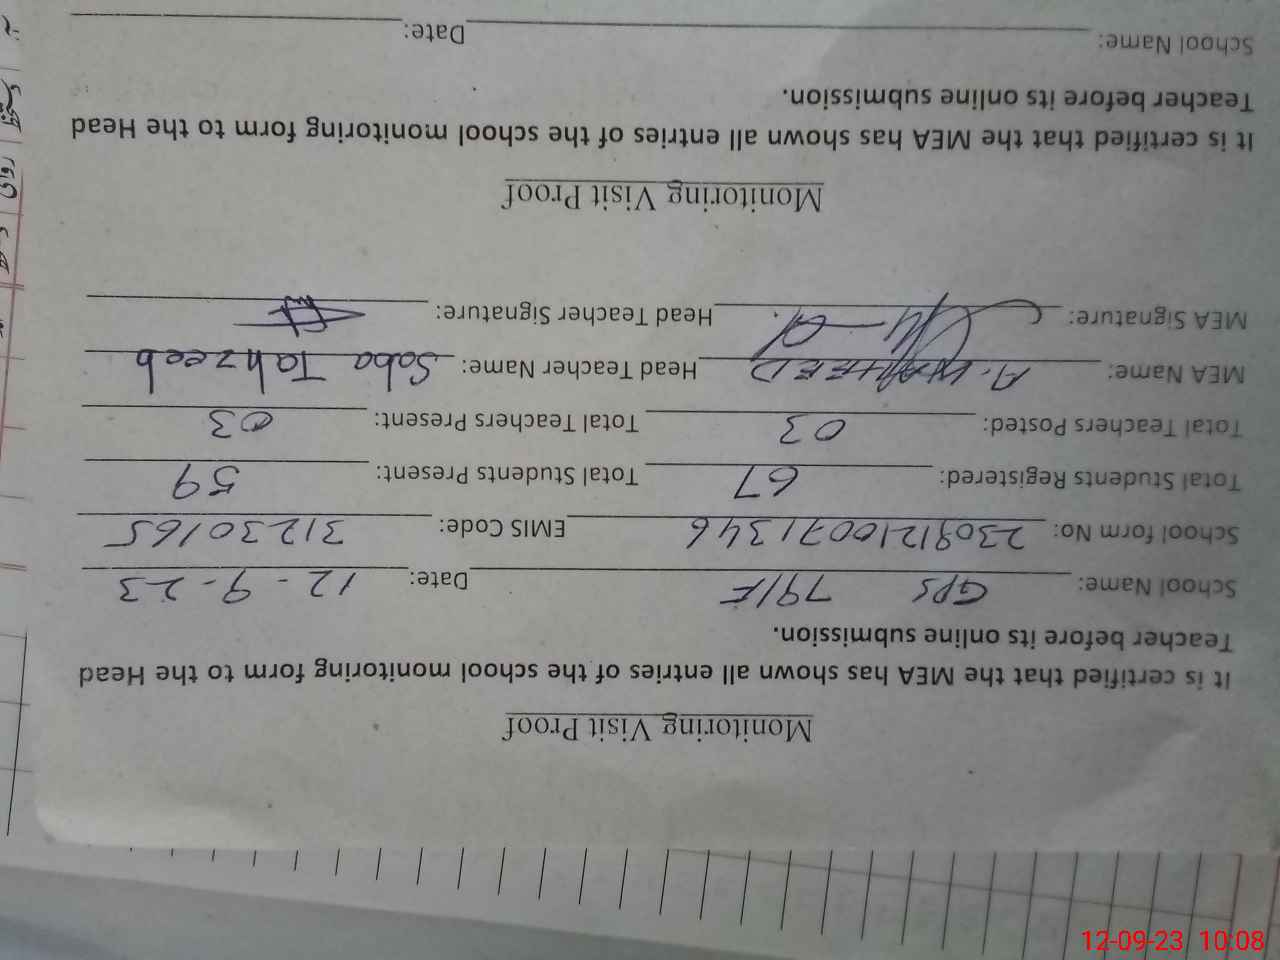 Monitoring Visit Proof
It is certified that the MEA has shown all entries of the school monitoring form to the Head
Teacher before its online submission.
School Name: GPS 791F Date: 12-9-23
School form No: 2309121007 1346 EMIS Code: 31230165
Total Students Registered: 67 Total Students Present: 59
Total Teachers Posted: 03 Total Teachers Present: 03
MEA Name: A.WAHEED Head Teacher Name: Saba Tahzeeb
MEA Signature: Head Teacher Signature:
Monitoring Visit Proof
It is certified that the MEA has shown all entries of the school monitoring form to the Head
Teacher before its online submission.
School Name: Date:
12-09-23 10:08